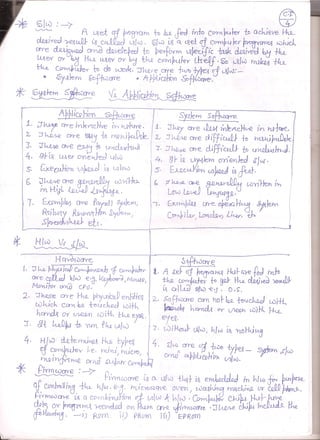 CF
4
* S/W :→
A set of program to be fed into computer to achieve the
desired result is called s/w. S/w is a set of computer programs which
are designed and developed to perform specific task desired by the
user or by the user or by the computer itself. So s/w makes the
the computer to do work. There are two types of s/w—
• System Software • Application Software.
* System Software Vs Application Software
Application Software
1. These are interactive in nature.
2. These are easy to manipulate.
3. These are easy to understand
4. It is user oriented s/w
5. Execution speed is slow
6. These are generally written
in High Level Language.
7. Examples are Payroll System,
Railway Reservation System,
Spreadsheet etc.
System Software
1. They are less interactive in nature.
2. These are difficult to manipulate
3. These are difficult to understand.
4. It is system oriented s/w.
5. Execution speed is fast.
6. These are generally written in
Low Level Language.
7. Examples are operating System
Compiler, Loader, Linker
* H/w Vs S/w
Hardware
1. The Physical Components of computer
are called h/w e.g. Keyboard, mouse,
Monitor and CPU.
2. These are the physical entities
which can be touched with
hands or seen with the eyes.
3. It helps to run the s/w
4. H/w determines the types
of computer i.e. mini, micro,
mainframe and super Computer
Software
1. A set of programs that are fed into
the computer to get the desired result
is called s/w e.g. O.S.
2. Software can not be touched with
hands or seen with the
eyes.
3. Without s/w, h/w is nothing
4. S/w are of two types – System s/w
and application s/w.
* Firmware :→
Firmware is a s/w that is embedded in h/w for purpose
of controlling the h/w. e.g. microwave oven, washing machine or cell phone.
Firmware is a combination of s/w & h/w. Computer Chips that have
data or programs recorded on them are firmware. These chips include the
following. —1) ROM ii) PROM iii) EPROM